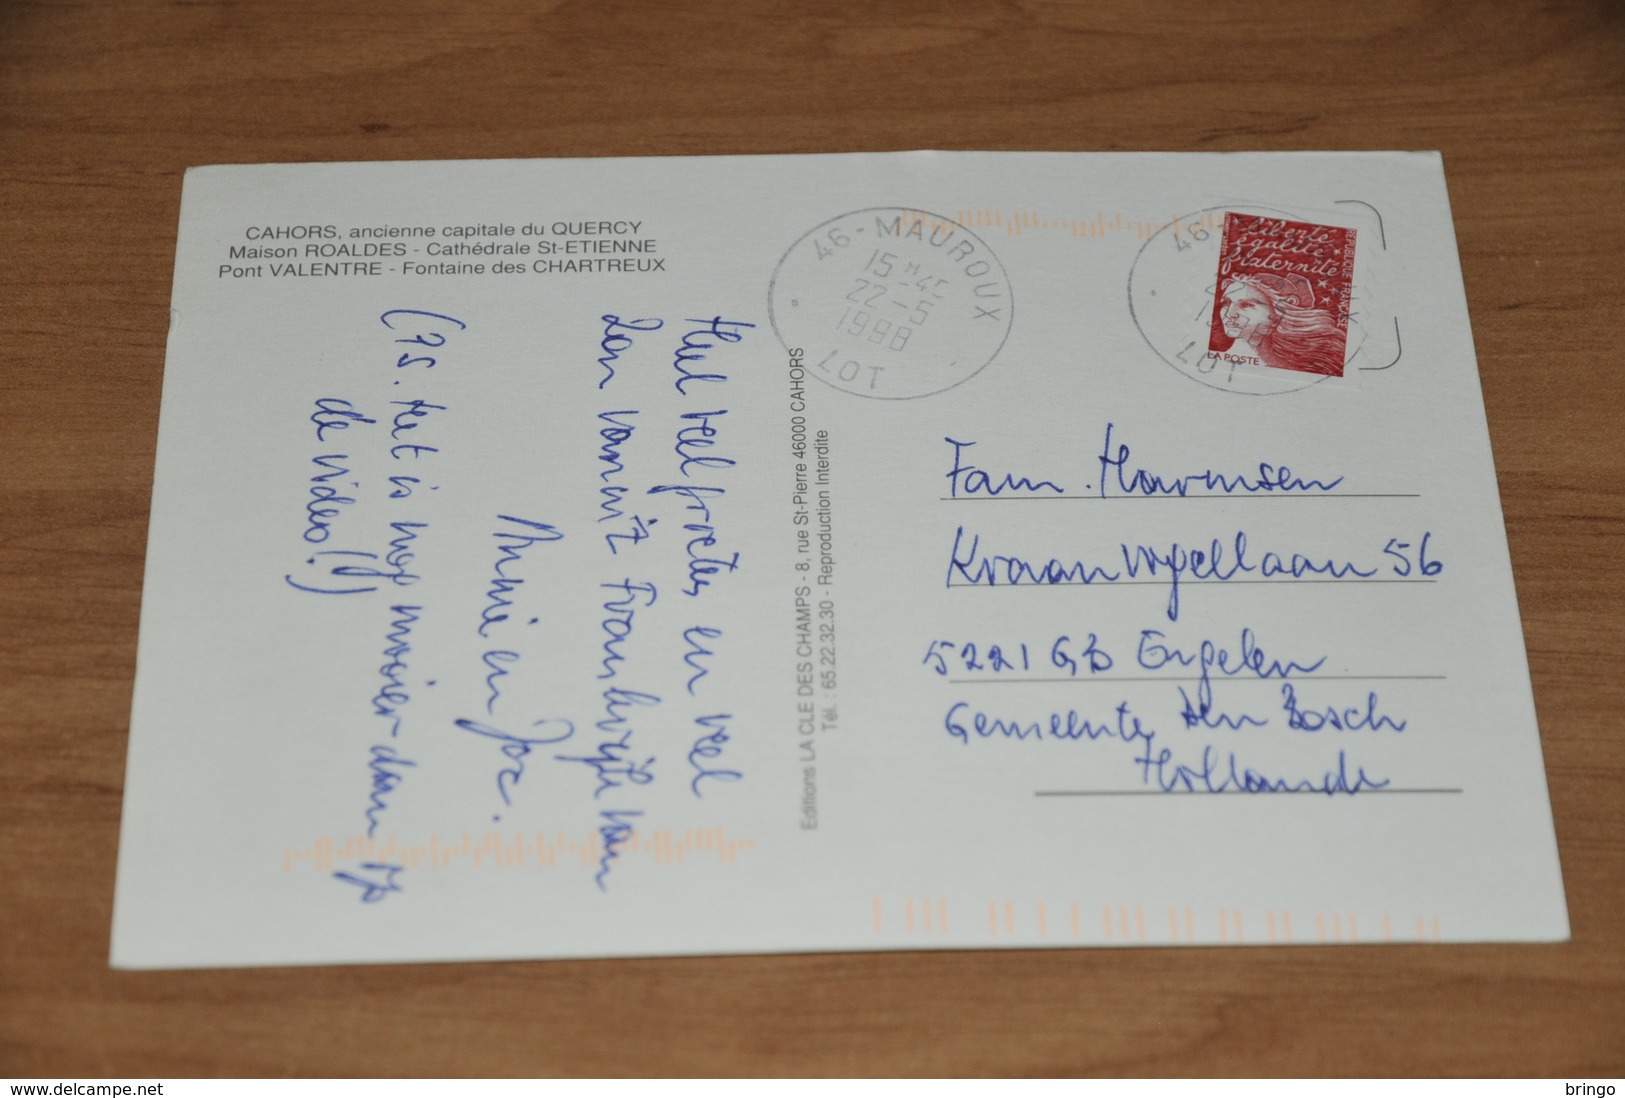 CAHORS, ancienne capitale du QUERCY
Maison ROALDES - Cathédrale St-ETIENNE
Pont VALENTRE - Fontaine des CHARTREUX
Heel veel groetjes en veel
zon vanuit Frankrijk van
Annie en Jac.
(Ps. het is nog mooier dan op
de video!!)
Editions LA CLE DES CHAMPS - 8, rue St-Pierre 46000 CAHORS
Tél. : 65.22.32.30 - Reproduction Interdite
46 - MAUROUX
15 H 45
22 - 5
1998
LOT
46 -
LOT
liberté
égalité
fraternité
REPUBLIQUE FRANÇAISE
LA POSTE
Fam. Harmsen
Kraanvogellaan 56
5221 GB Engelen
Gemeente Den Bosch
Hollande
delcampe.net
bringo